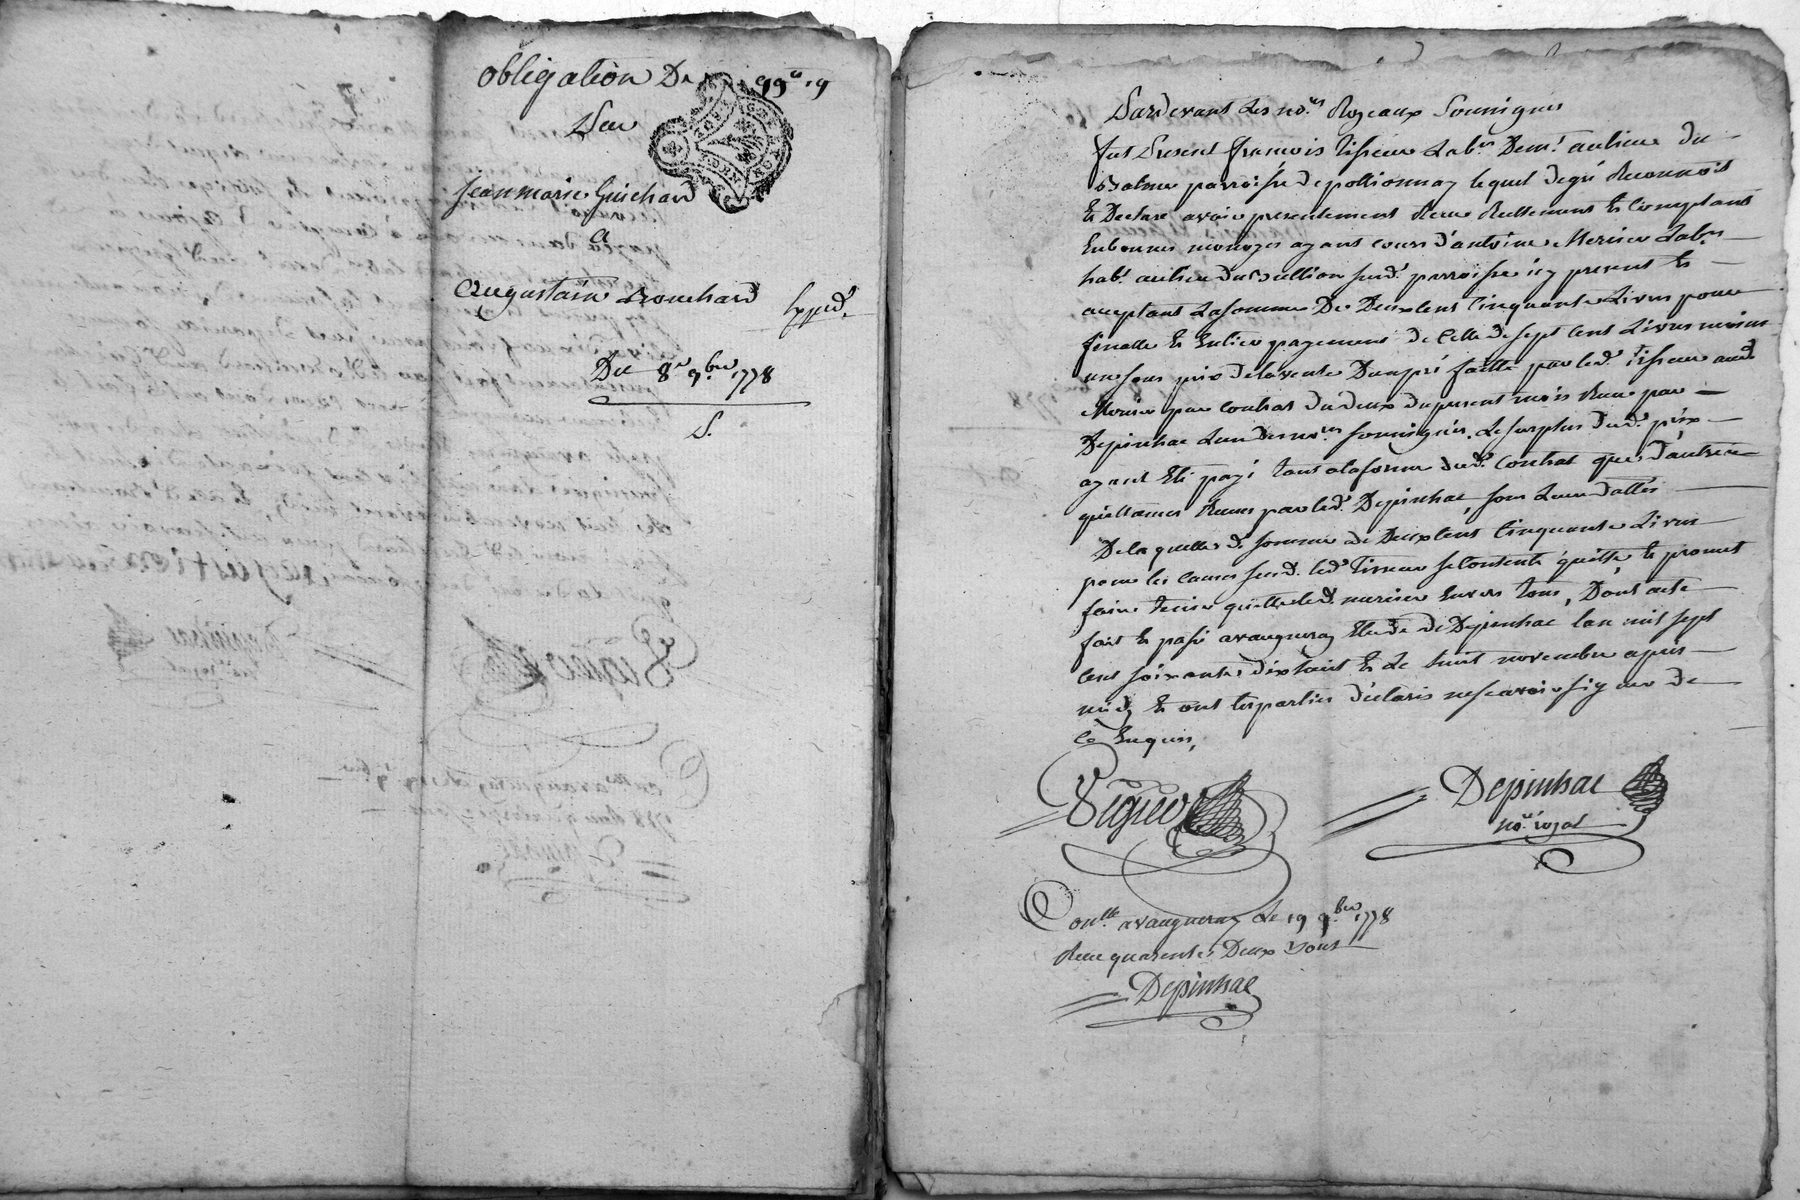 obligation De 99# 19
Par
Jean marie Guichard
a
augustain Bouchard
Expéd.
Du 8e 9.bre 1778
S.
Pardevant Les no.res Royeaux Soussignes
fut Present francois tisseur Lab.r Dem.t au lieu du
parroisse de pollionnay lequel de gré Reconnoit
Et Declare avoir presentement Receu Reellement Et Comptant
En bonnes monoyes ayant cours d'antoine Mercier Lab.r
hab.t au lieu du sud.e parroisse icy present Et
aceptant La somme De Deux Cent Cinquante Livres pour
finalle Et Entier payement de Celle de sept Cent Livres moins
un sous prix de la vente Dun pré faitte par led. tisseur aud.
Mercier par contrat du deux du present mois Receu par
Depinhac Lun des no.res soussignés, Le surplus dud. prix
ayant Eté payé tant a la forme dud. contrat que d'autres
quittances Receues par led. Depinhac, sous Leurs dattes
De laquelle d. somme de Deux Cent Cinquante Livres
pour les causes susd. led. tisseur se Contente quitte Et promet
faire tenir quitte led. mercier Envers tous, Dont acte
fait Et passé a vaugneray Etude de Depinhac lan mil sept
Cent soixante dix huit Et Le huit novembre apres
midy Et ont les parties déclaré ne scavoir signer de
Ce Enquis,
Depinhac
no.re royal
Con.lle a vaugneray Le 19 9.bre 1778
Receu quarente Deux sous
Depinhac